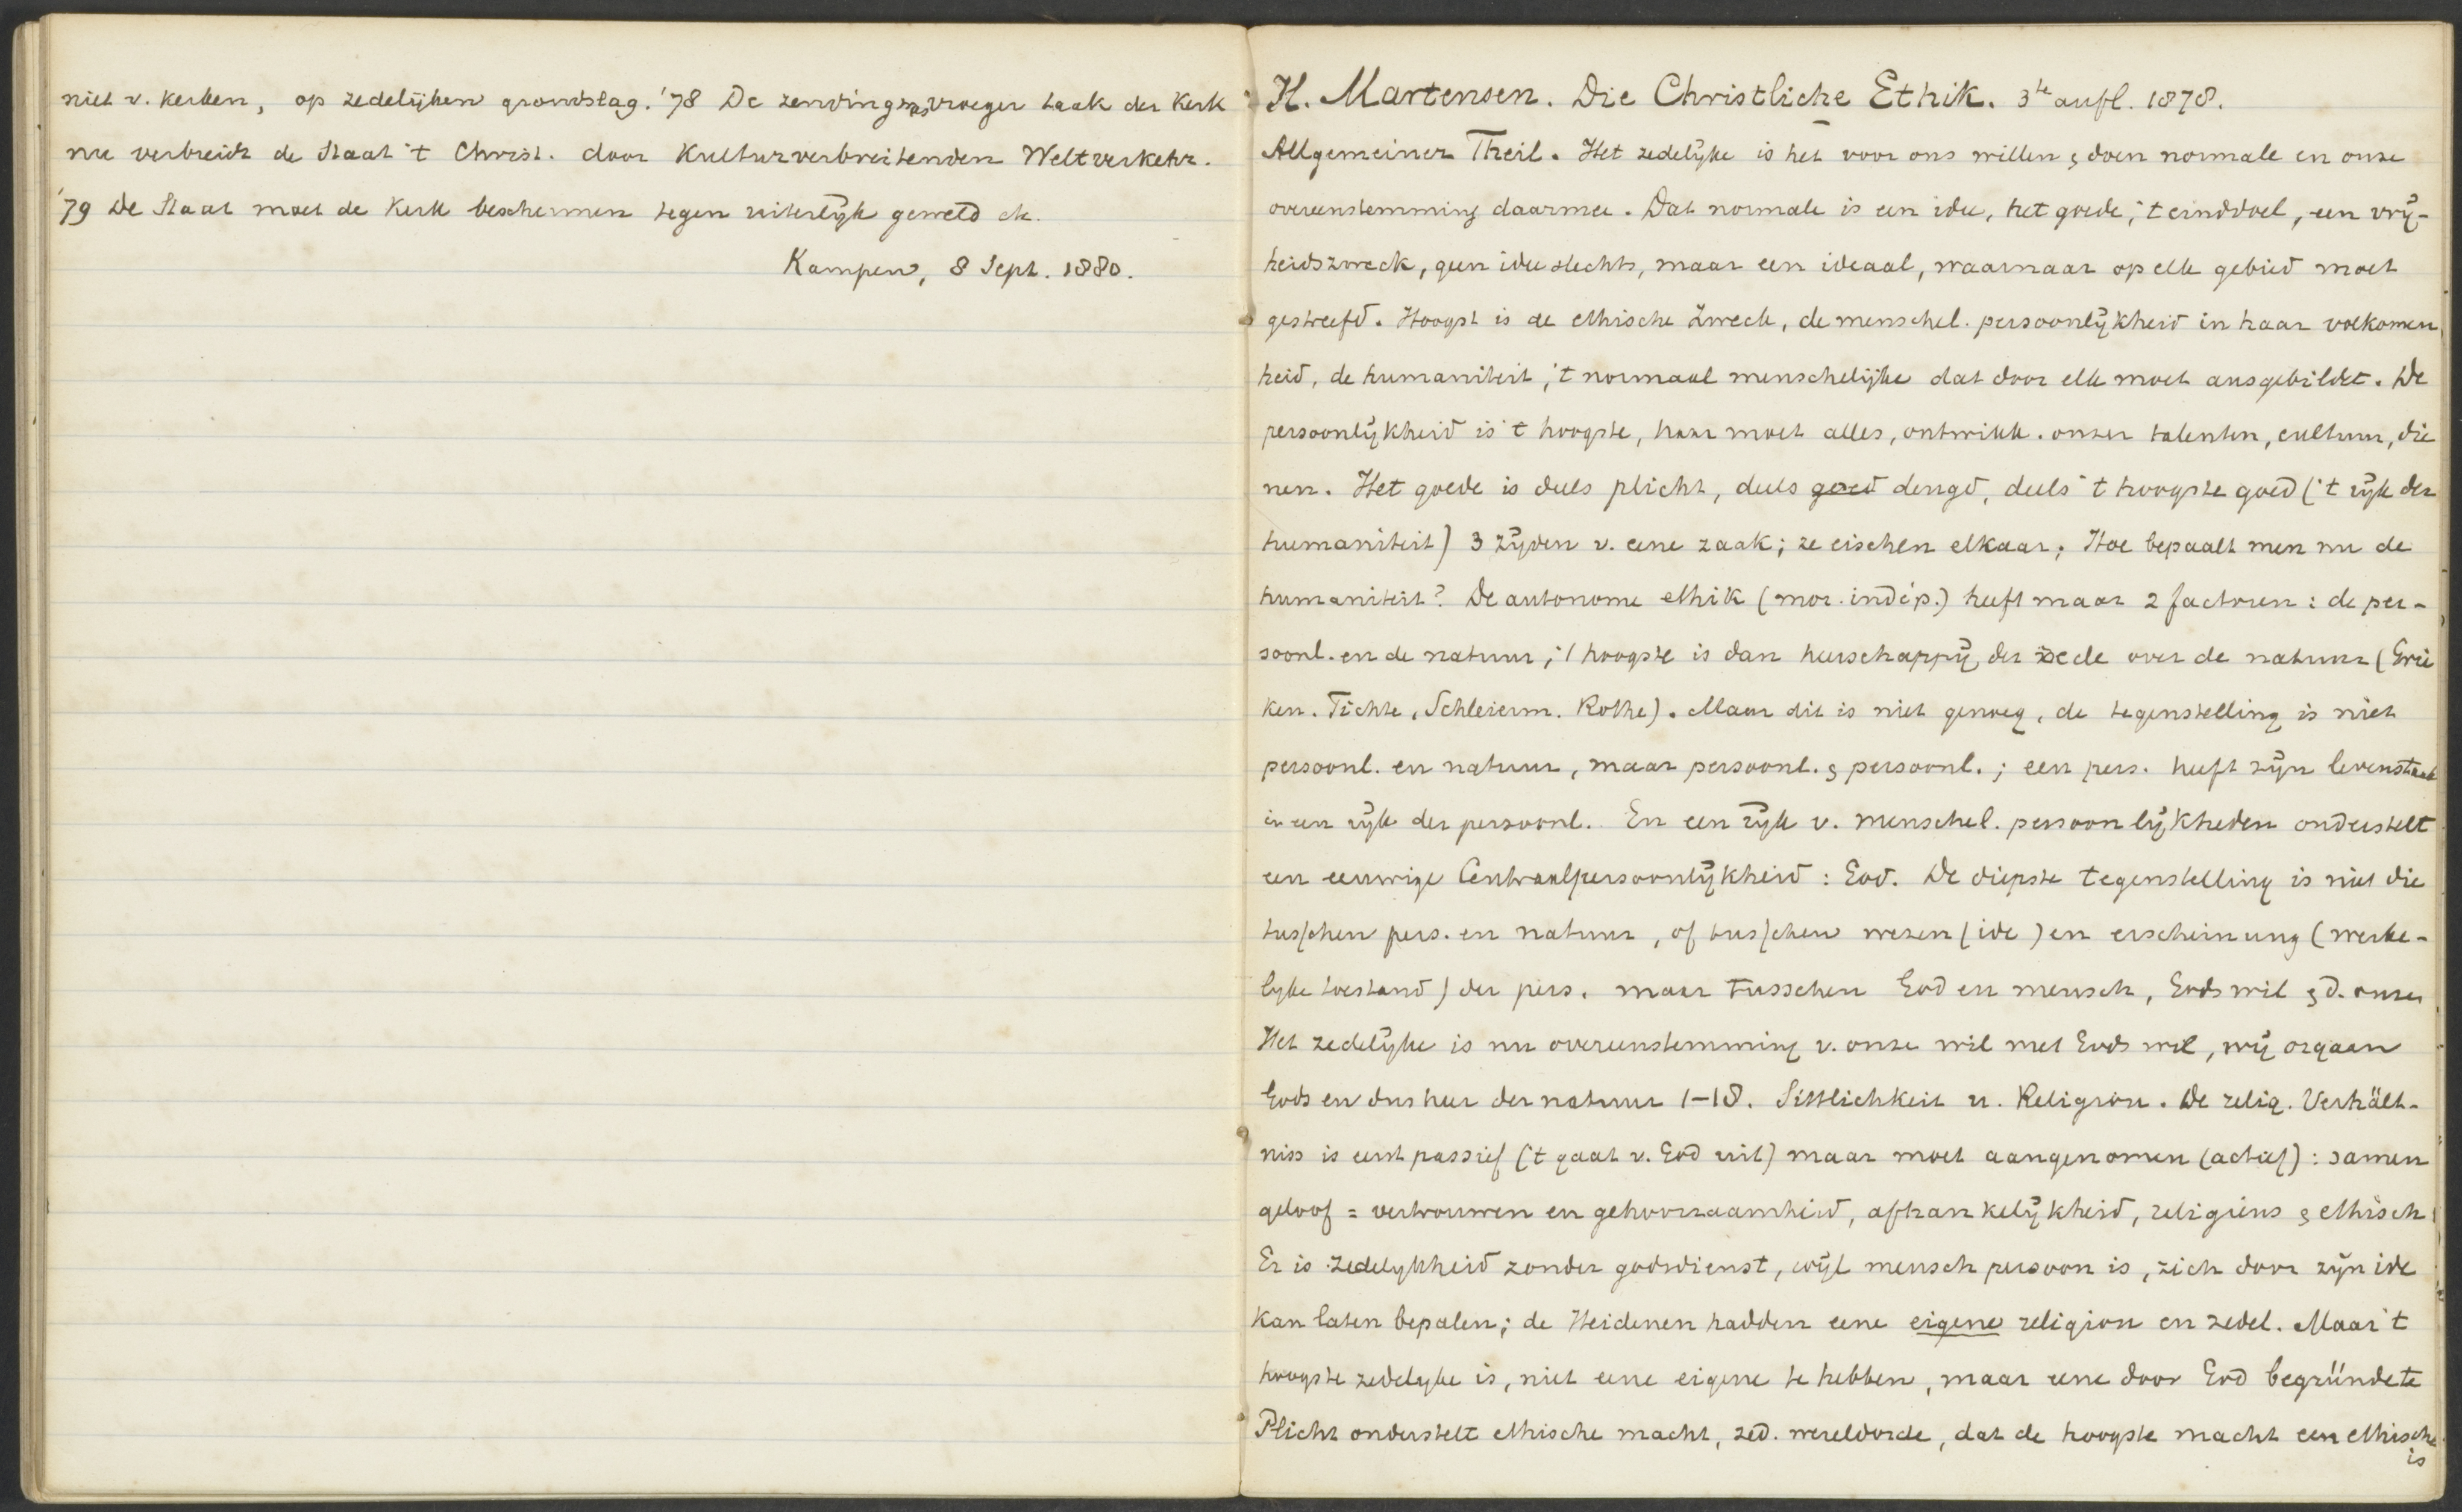 niet v. kerken, op zedelijken grondslag. '78 De zending was vroeger taak der Kerk
nu verbreidt de Staat 't Christ. door Kulturverbreitenden Weltverkehr.
'79 De Staat moet de Kerk beschermen tegen uiterlijk geweld etc.
Kampen, 8 Sept. 1880.
H. Martensen. Die Christliche Ethik. 3te aufl. 1878.
Allgemeiner Theil. Het zedelijke is het voor ons willen & doen normale en onze
overeenstemming daarmee. Dat normale is een idee, het goede, 't einddoel, een vrij-
heidszweck, geen idee slechts, maar een ideaal, waarnaar op elk gebied moet
gestreefd. Hoogst is de ethische Zweck, de menschel. persoonlijkheid in haar volkomen
heid, de humaniteit, 't normaal menschelijke dat door elk moet ausgebildet. De
persoonlijkheid is 't hoogste, haar moet alles, ontwikk. onzer talenten, cultuur, die
nen. Het goede is deels plicht, deels goed deugd, deels 't hoogste goed ('t rijk der
humaniteit) 3 zijden v. eene zaak; ze eischen elkaar. Hoe bepaalt men nu de
humaniteit? De autonome ethik (mor. indép.) heeft maar 2 factoren: de per-
soonl. en de natuur, 't hoogste is dan heerschappij der rede over de natuur (Grie
ken. Fichte, Schleierm. Rothe). Maar dit is niet genoeg, de tegenstelling is niet
persoonl. en natuur, maar persoonl. & persoonl.; een pers. heeft zijn levenstaak
in een rijk der persoonl. En een rijk v. menschel. persoonlijkheden onderstelt
een eeuwige Centraalpersoonlijkheid: God. De diepste tegenstelling is niet die
tusschen pers. en natuur, of tusschen wezen (idee) en erscheinung (werke-
lijke toestand) der pers. maar tusschen God en mensch, Gods wil & d. onzen
Het zedelijke is nu overeenstemming v. onze wil met Gods wil, wij orgaan
Gods en dus heer der natuur 1-18. Sittlichkeit u. Religion. De relig. Verhält-
niss is eerst passief ('t gaat v. God uit) maar moet aangenomen (actief): samen
geloof = vertrouwen en gehoorzaamheid, afhankelijkheid, religieus & ethisch
Er is zedelijkheid zonder godsdienst, wijl mensch persoon is, zich door zijn idee
kan laten bepalen; de Heidenen hadden eene eigene religion en zedel. Maar 't
hoogste zedelijke is, niet eene eigene te hebben, maar eene door God begründete
Plicht onderstelt ethische macht, zed. wereldorde, dat de hoogste macht een ethische
is